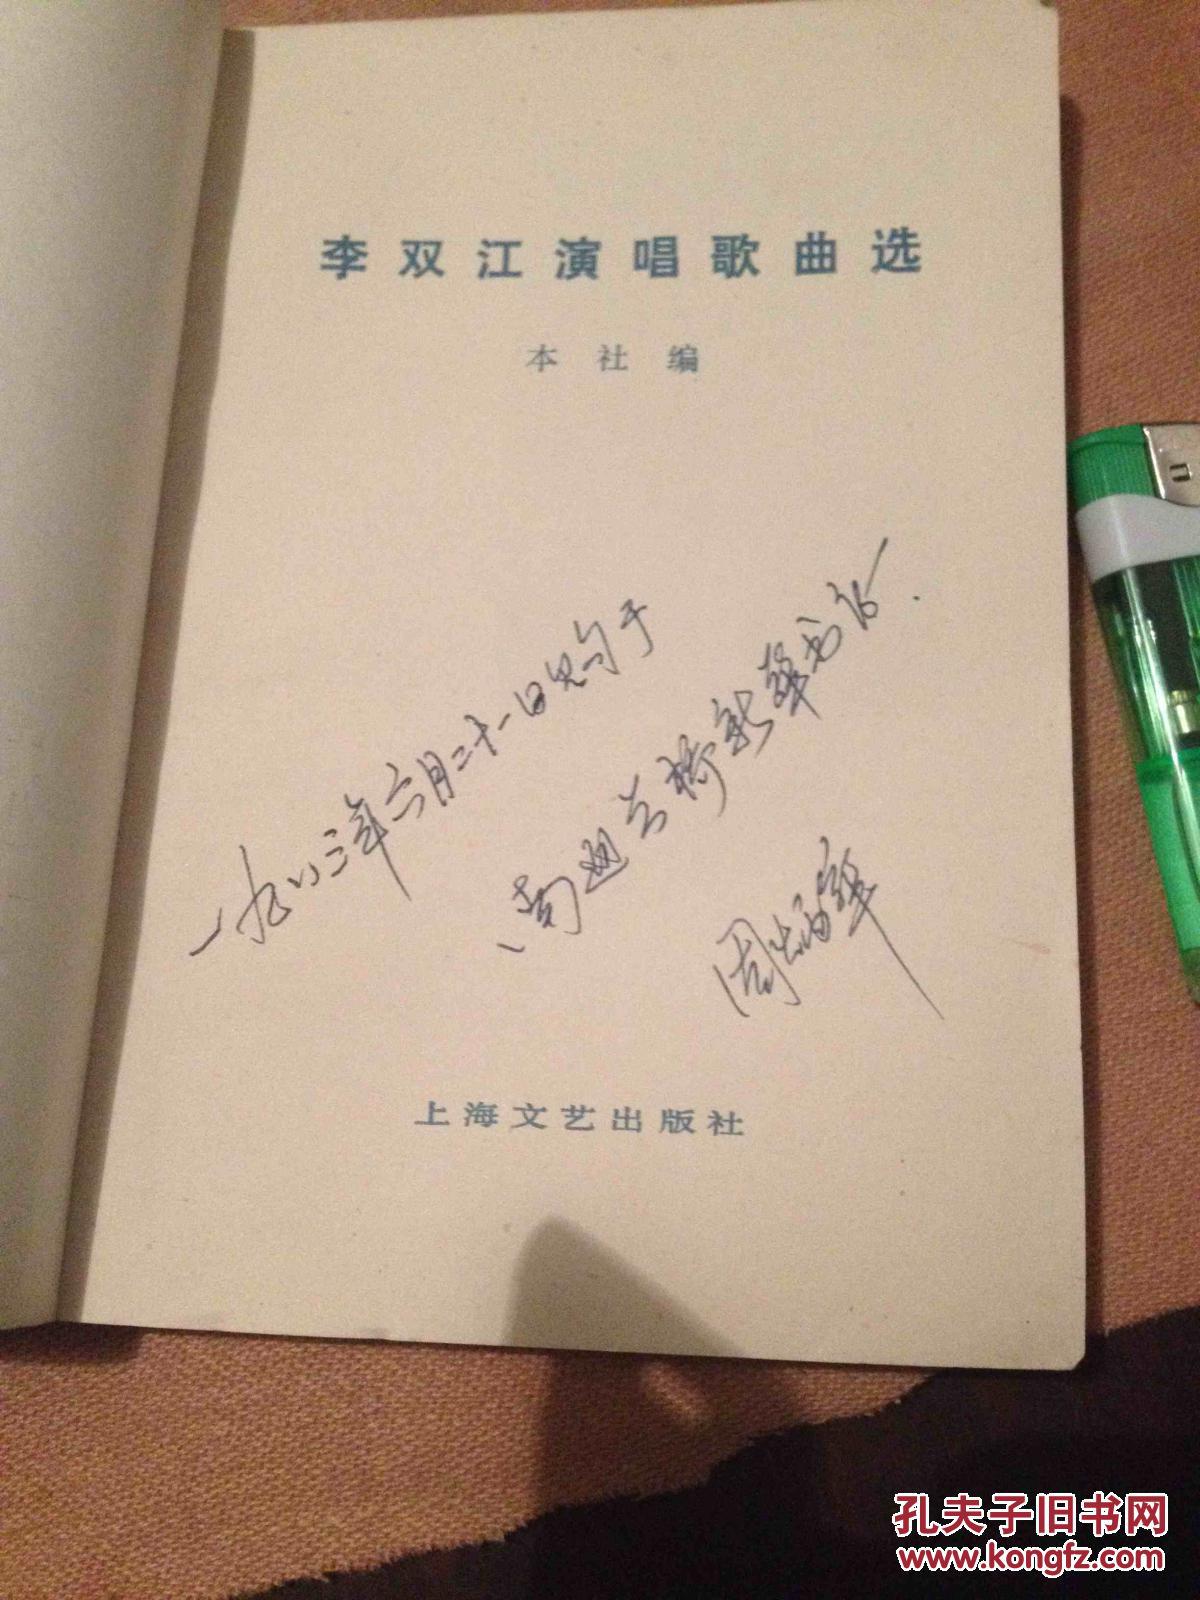 李双江演唱歌曲选
本社编
一九八三年六月二十一日购于
南通 桥新华书店.
周 华
上海文艺出版社
孔夫子旧书网
www.kongfz.com